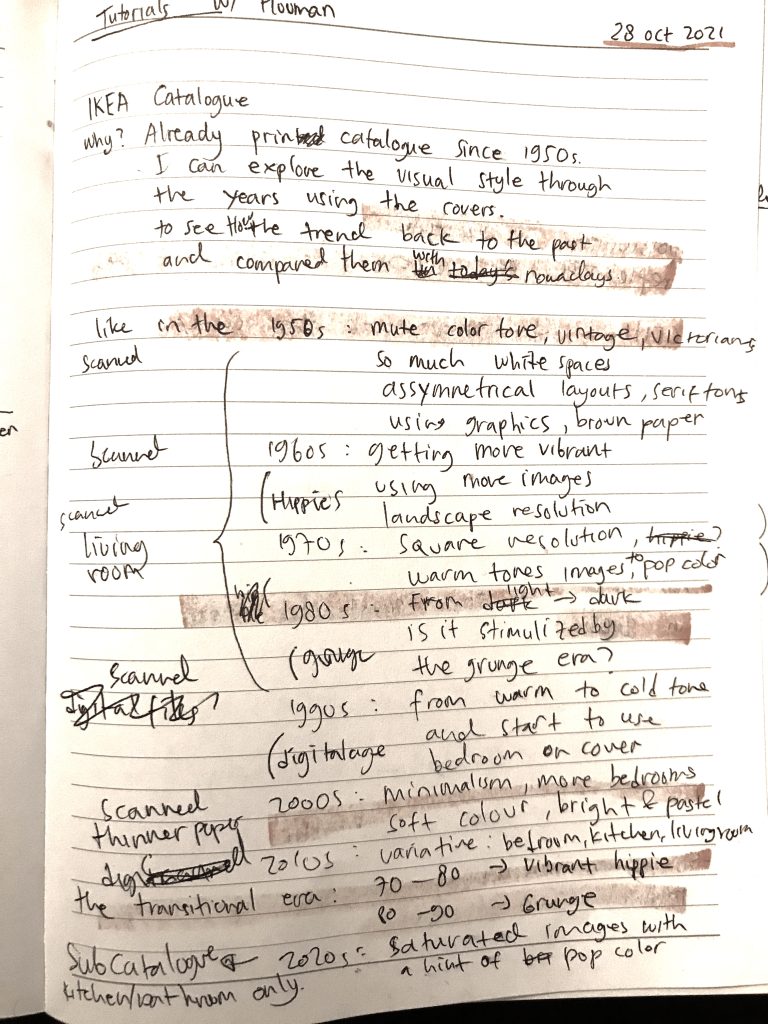 Tutorials w/ Houman
28 oct 2021
IKEA Catalogue
why? Already printed catalogue since 1950s.
I can explore the visual style through
the years using the covers.
to see How the trend back to the past
and compared them with today's nowadays
like in the 1950s : mute color tone, vintage, victorians
scanned so much white spaces
assymnetrical layouts, serif fons
using graphics, brown paper
Scanned 1960s : getting more vibrant
(Hippies using more images
scanned landscape resolution
living 1970s : square resolution, hippie?
room warm tones images, to pop color
1980s : From dark light → dark
is it stimulized by
(grunge the grunge era?
Scanned
digital files? 1990s : from warm to cold tone
and start to use
(digital age bedroom on cover
Scanned 2000s : minimalism, more bedrooms
thinner paper soft colour, bright & pastel
2010s : variative : bedroom, kitchen, livingroom
the transitional era : 70 – 80 → vibrant hippie
80 – 90 → Grunge
SubCatalogue ← 2020s : saturated images with
kitchen/bathroom only. a hint of pop color